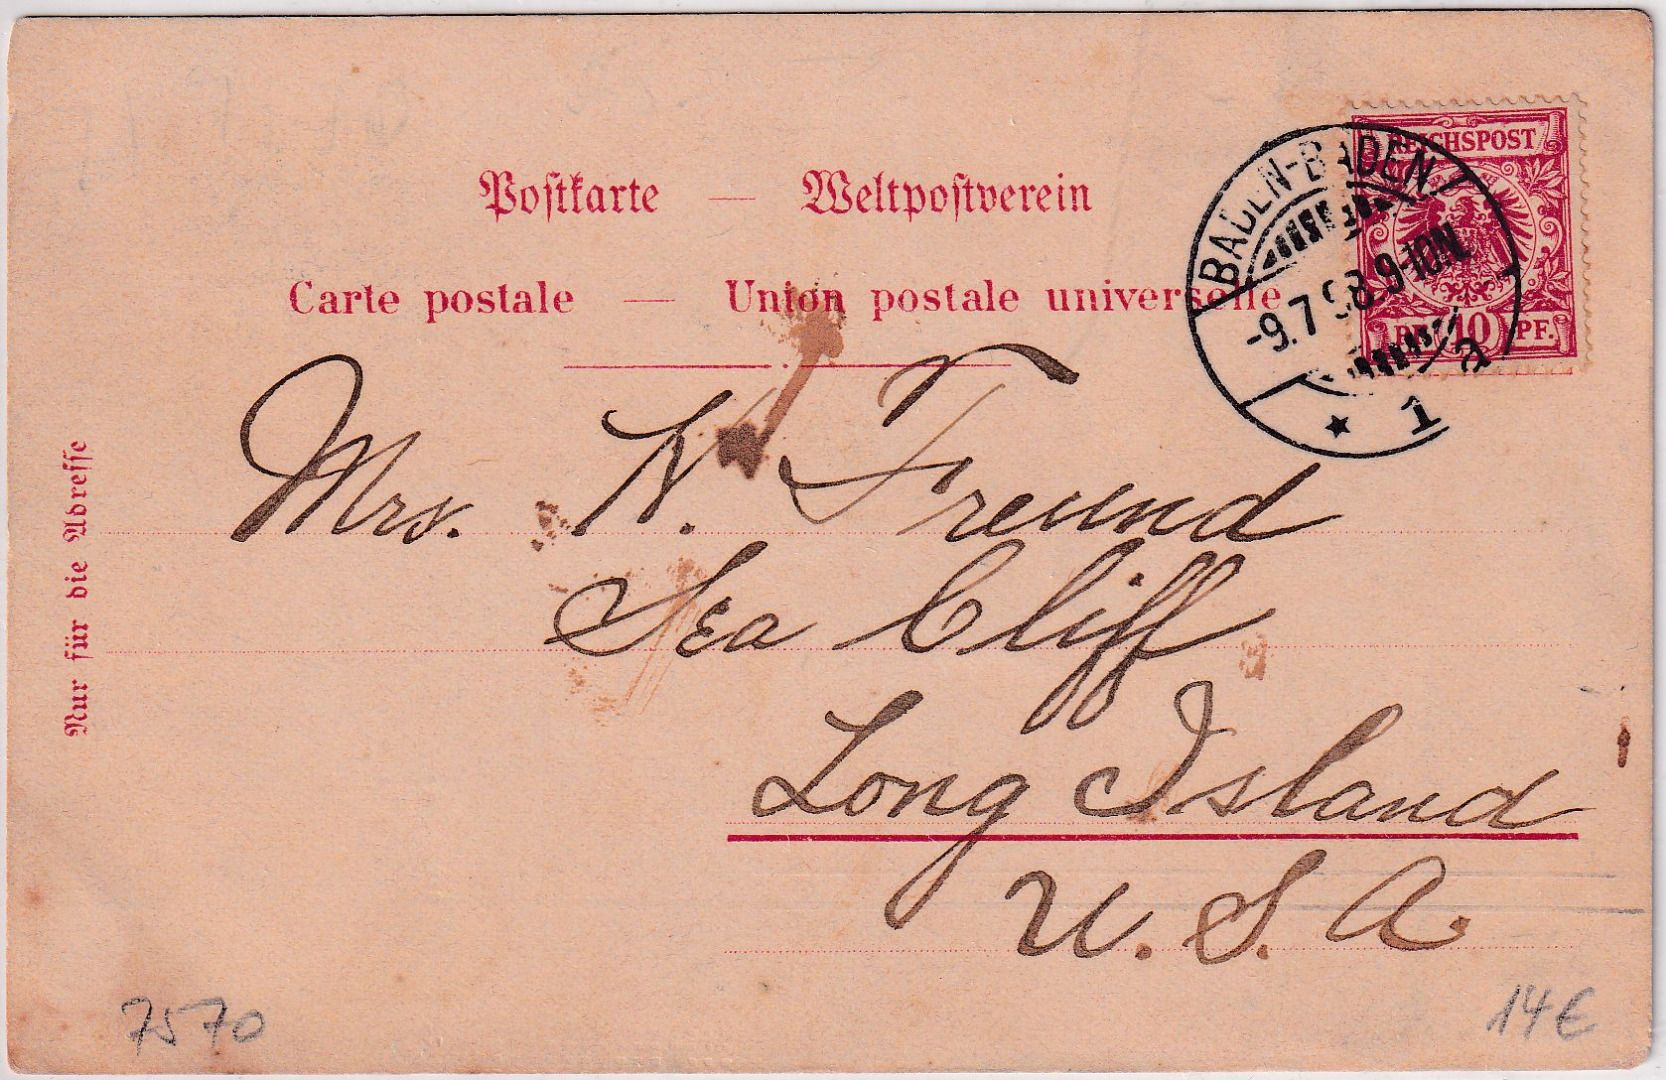 Postkarte — Weltpostverein
Carte postale — Union postale universelle
REICHSPOST
10 PF.
BADEN-BADEN
-9.7 98.9-10N.
* 1 a
Nur für die Adresse
Mrs. N. Freund
Sea Cliff
Long Island
U. S. A.
7570
14€